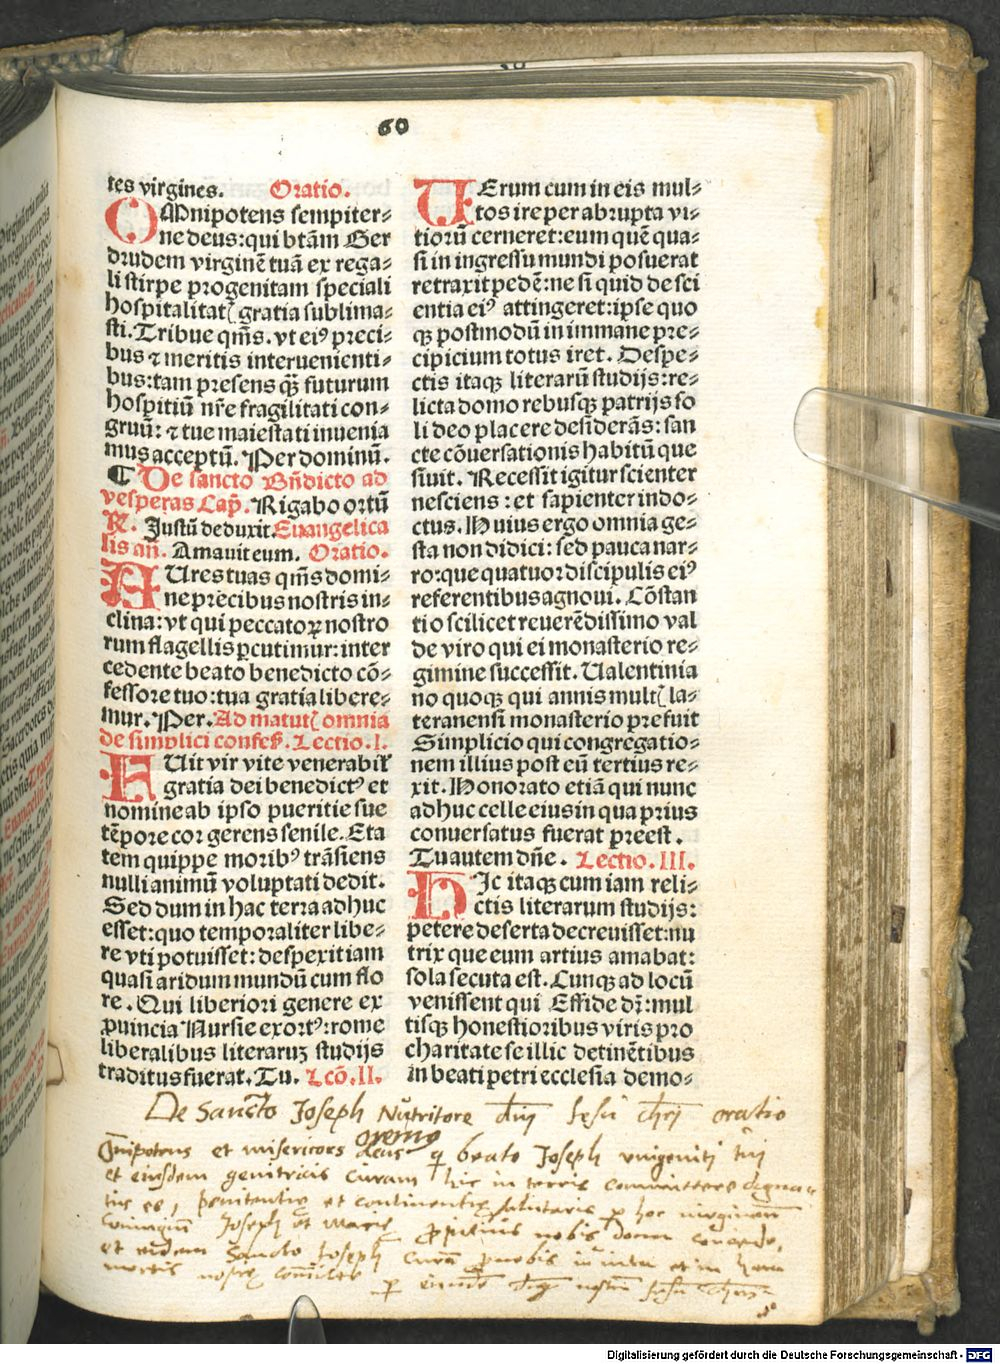 60
tes virgines. Oratio.
OMnipotens sempiter⸗
ne deus:qui btãm Ger
drudem virginẽ tuã ex rega⸗
li stirpe progenitam speciali
hospitalitatꝭ gratia sublima⸗
sti. Tribue qm̃s. vt eiꝰ preci⸗
bus ⁊ meritis interuenienti⸗
bus:tam presens qꝫ̃ futurum
hospitiũ nr̃e fragilitati con⸗
gruũ: ⁊ tue maiestati inuenia
mus acceptũ. Per dominũ.
¶ De sancto Bñdicto ad
vesperas Cap̃. Rigabo ortũ
R. Justũ deduxit. Euangelica
lis añ. Amauit eum. Oratio.
AUres tuas qm̃s domi⸗
ne precibus nostris in⸗
clina: vt qui peccatoꝝ nostro
rum flagellis ꝑcutimur: inter
cedente beato benedicto cõ⸗
fessore tuo: tua gratia libere⸗
mur. Per. Ad matutꝭ omnia
de simplici confes̃. Lectio. I.
FUit vir vite venerabiꝉ
gratia dei benedictꝰ et
nomine ab ipso pueritie sue
tẽpore cor gerens senile. Eta
tem quippe moribꝰ trãsiens
nulli animũ voluptati dedit.
Sed dum in hac terra adhuc
esset: quo temporaliter libe⸗
re vti potuisset: despexit iam
quasi aridum mundũ cum flo
re. Qui liberiori genere ex
ꝓuincia Nursie exortꝰ: rome
liberalibus literaruꝫ studijs
traditus fuerat. Tu. Lcõ. II.
UErum cum in eis mul⸗
tos ire per abrupta vi⸗
tiorũ cerneret: eum quẽ qua⸗
si in ingressu mundi posuerat
retraxit pedẽ: ne si quid de sci
entia eiꝰ attingeret: ipse quo
qꝫ postmodũ in immane pre⸗
cipicium totus iret. Despe⸗
ctis itaqꝫ literarũ studijs: re⸗
licta domo rebusqꝫ patrijs so
li deo placere desiderãs: san
cte cõuersationis habitũ que
siuit. Recessit igitur scienter
nesciens: et sapienter indo⸗
ctus. Huius ergo omnia ge⸗
sta non didici: sed pauca nar⸗
ro: que quatuor discipulis eiꝰ
referentibus agnoui. Cõstan
tio scilicet reuerẽdissimo val
de viro qui ei monasterio re⸗
gimine successit. Ualentinia
no quoqꝫ qui annis multꝭ la⸗
teranensi monasterio prefuit
Simplicio qui congregatio⸗
nem illius post eũ tertius re⸗
xit. Honorato etiã qui nunc
adhuc celle eius in qua prius
conuersatus fuerat preest.
Tu autem dñe. Lectio. III.
HIc itaqꝫ cum iam reli⸗
ctis literarum studijs:
petere deserta decreuisset: nu
trix que eum artius amabat:
sola secuta est. Cunqꝫ ad locũ
venissent qui Effide dr̃: mul
tisqꝫ honestioribus viris pro
charitate se illic detinẽtibus
in beati petri ecclesia demo⸗
De Sancto Joseph Nutritore dñi Jesu chri oratio
oremus
Omnipotens et misericors deus q beato Joseph unigeniti tui
et eiusdem genitricis curam hic in terris committere digna⸗
tus es, penitentie et continentie salutaris p hoc virgineum
coniugium Joseph et Marie propitius nobis donum concede,
et eidem Sancto Joseph curam pro nobis in vita et in hora
mortis nostre committe p eundem dominum nostrum Jesum Christum
Digitalisierung gefördert durch die Deutsche Forschungsgemeinschaft - DFG